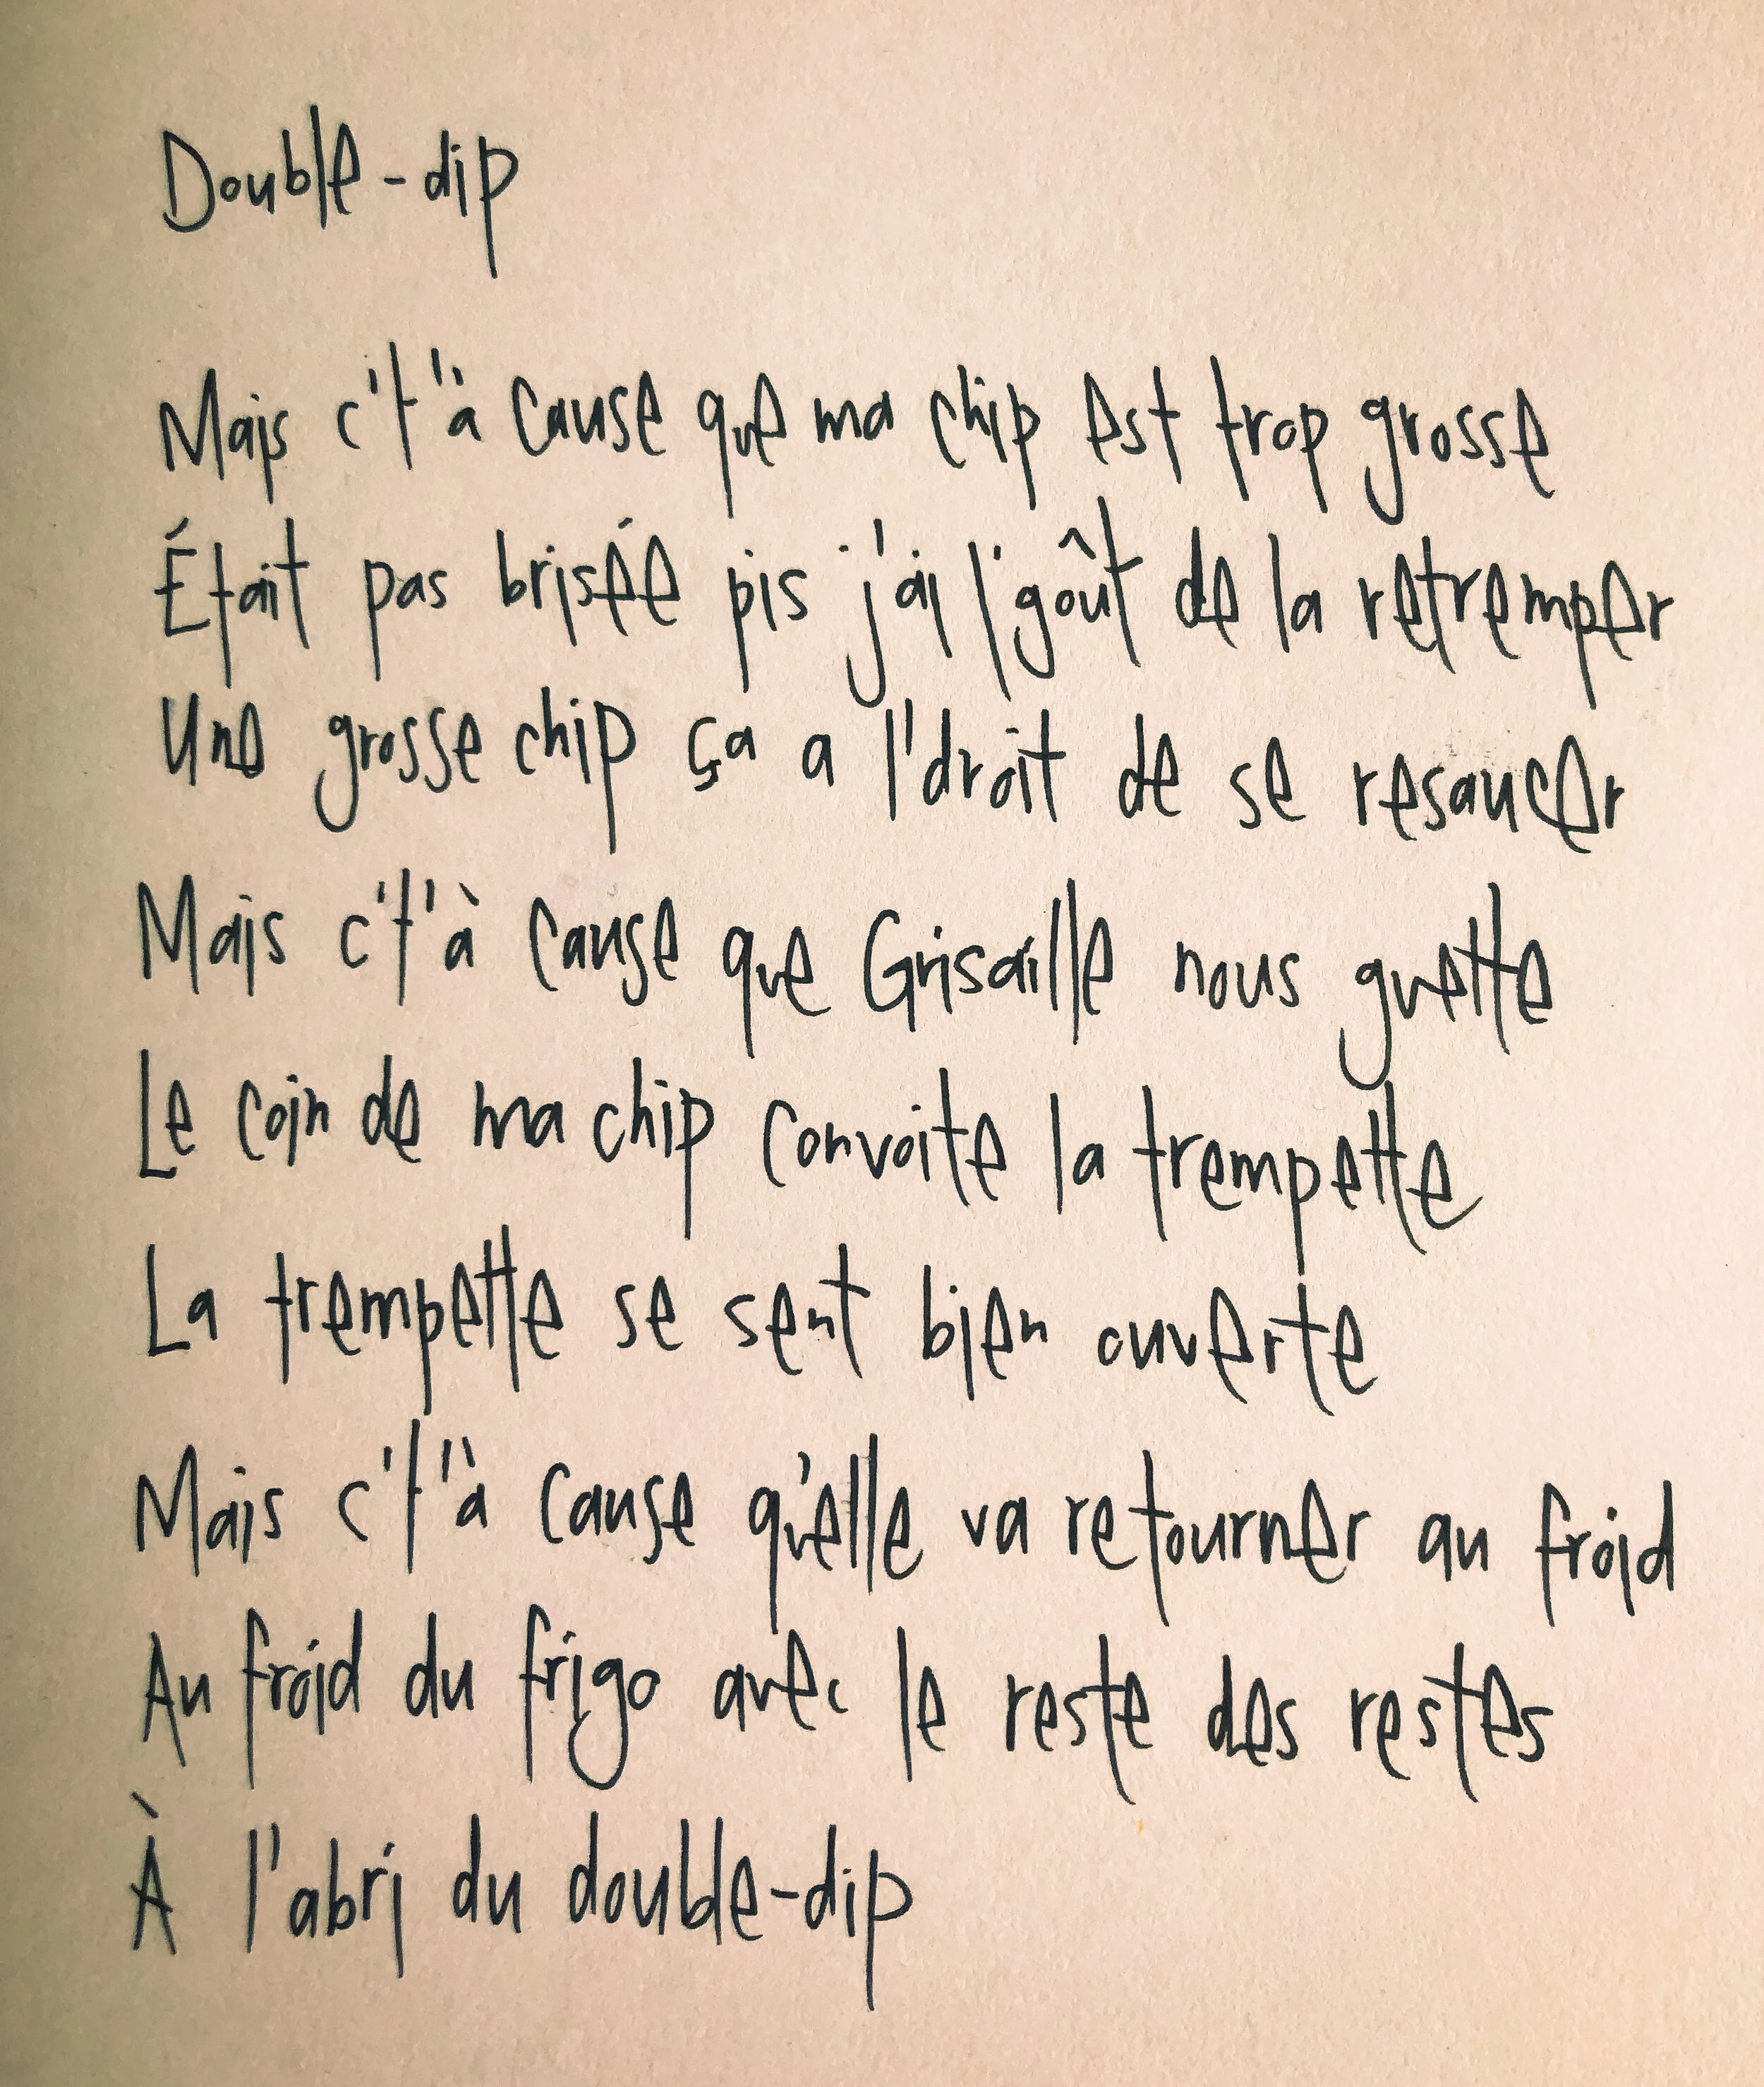 Double-dip
Mais c't'à cause que ma chip est trop grosse
Était pas brisée pis j'ai l'goût de la retremper
Une grosse chip ça a l'droit de se resaucer
Mais c't'à cause que Grisaille nous guette
Le coin de ma chip convoite la trempette
La trempette se sent bien ouverte
Mais c't'à cause qu'elle va retourner au froid
Au froid du frigo avec le reste des restes
À l'abri du double-dip